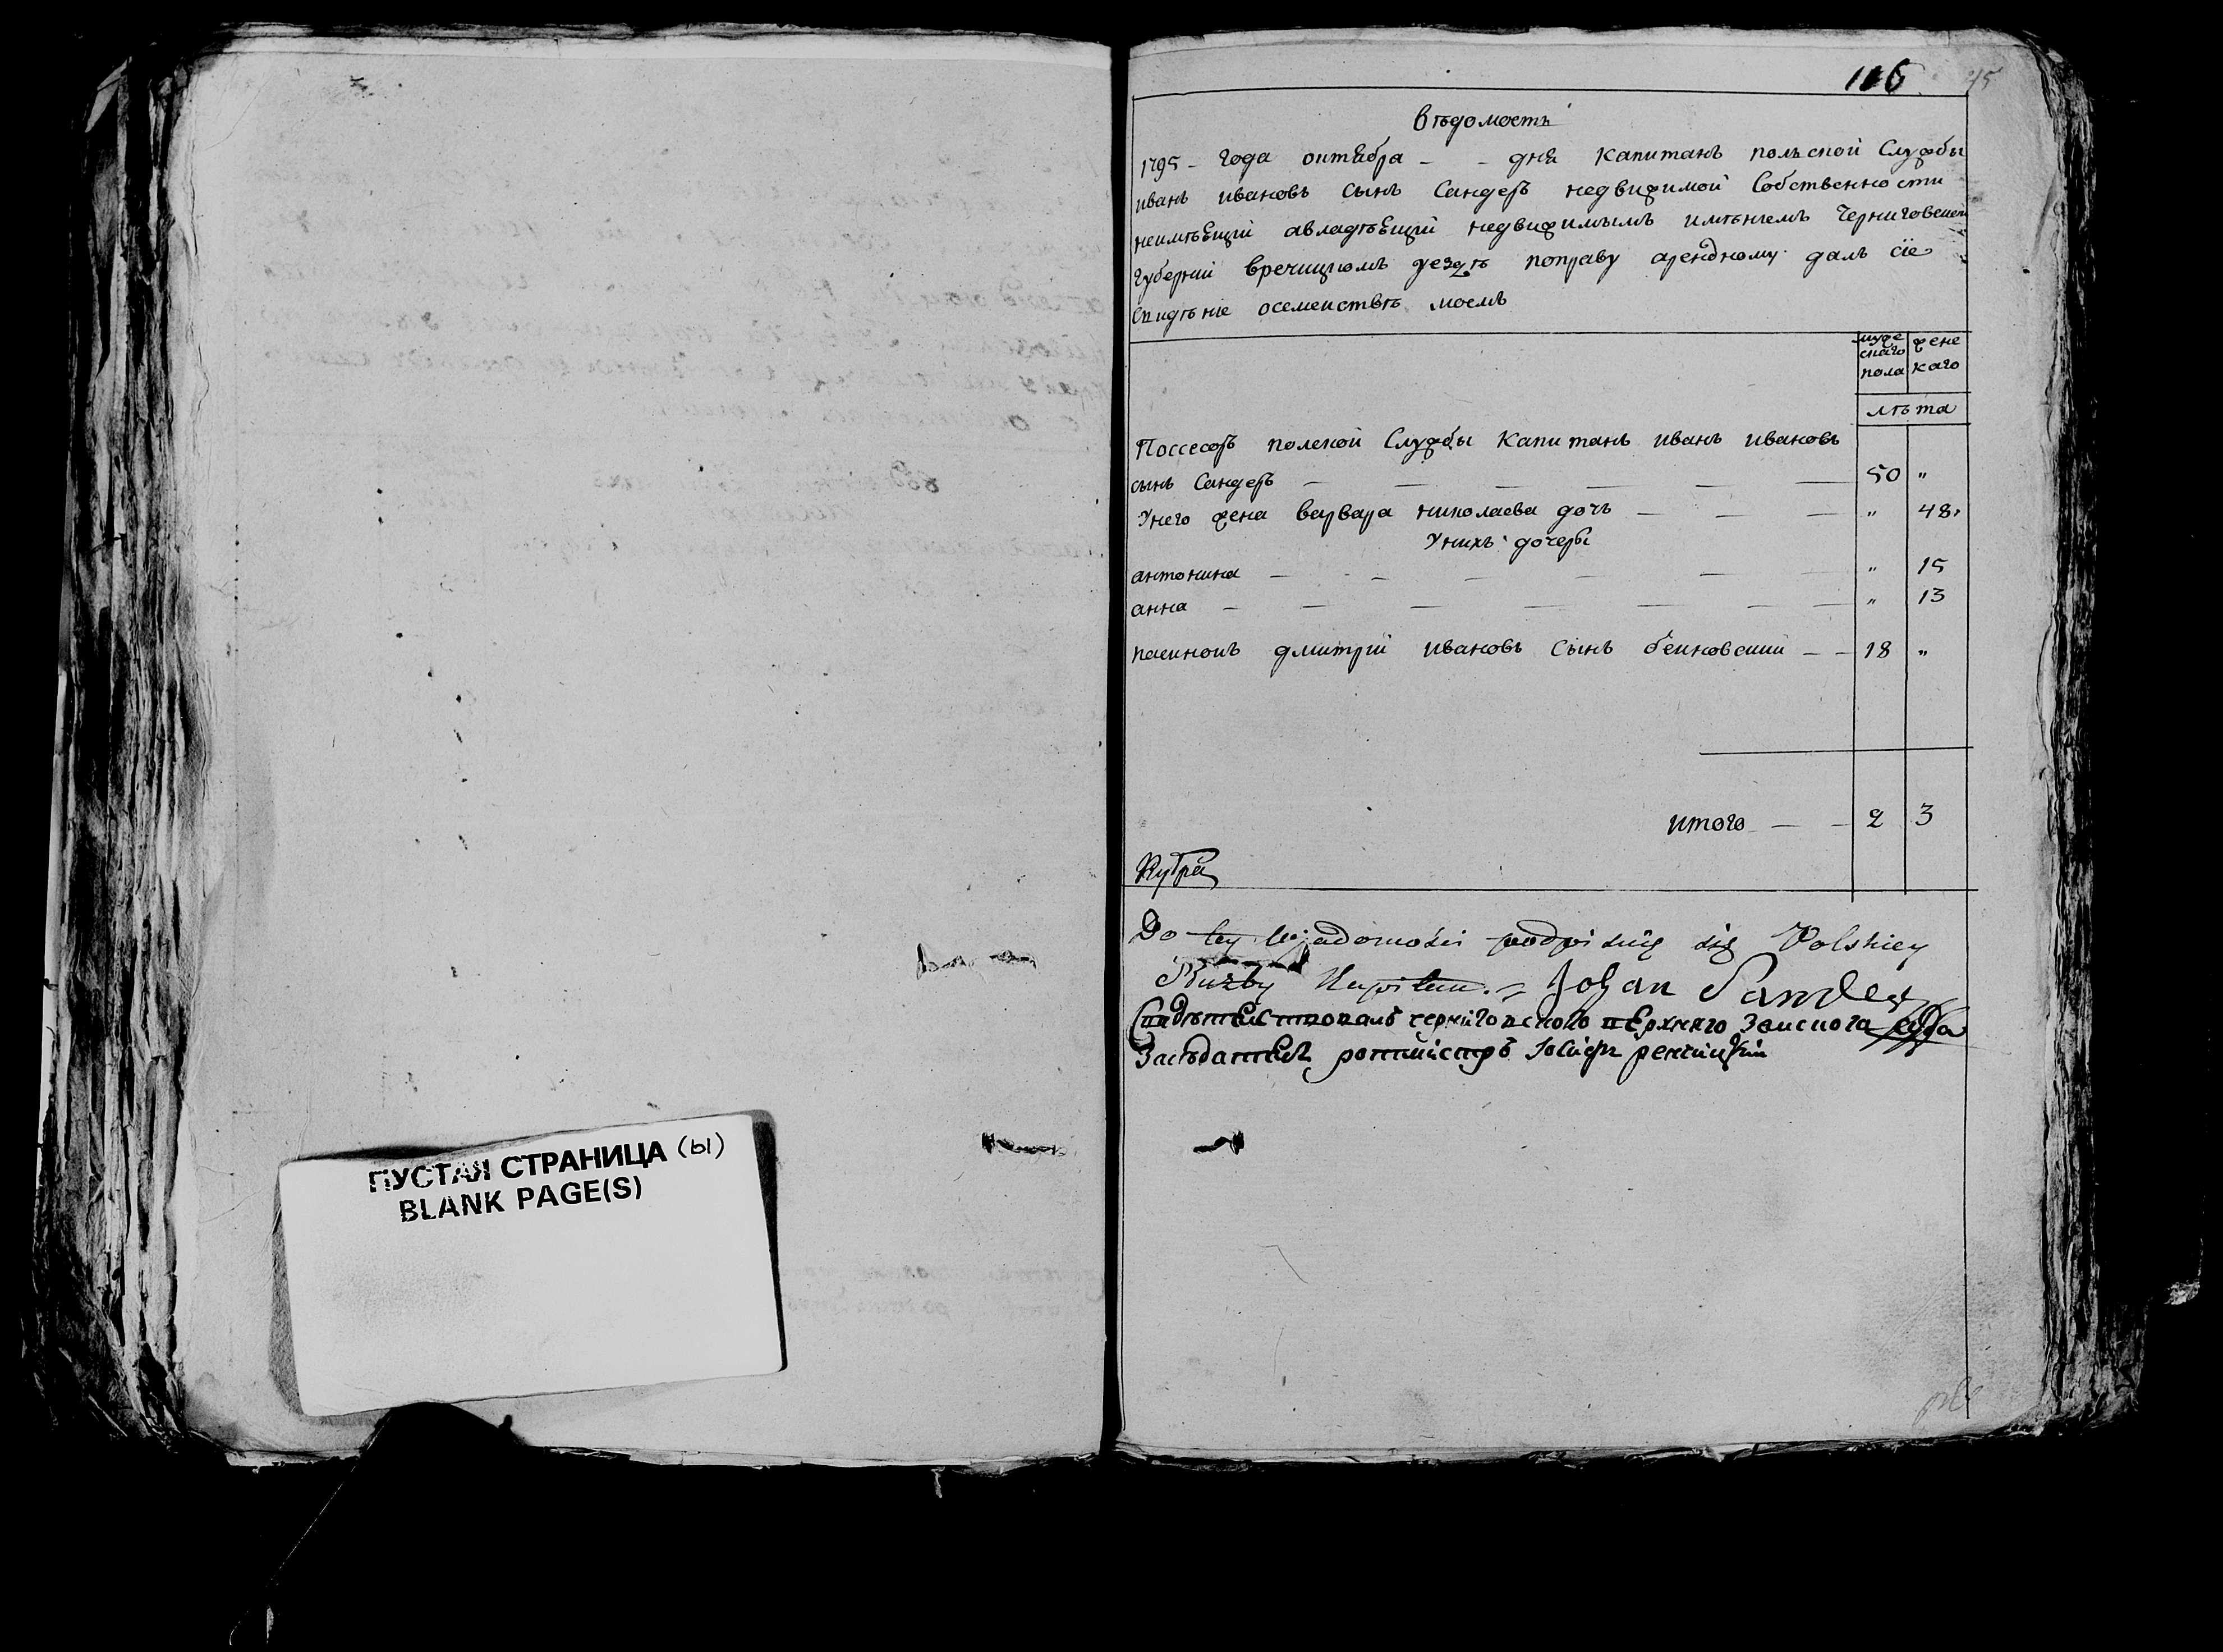 116 45
Вѣдомость
1795 - года октября - - дня капитанъ польской Службы
иванъ ивановъ сынъ Сандеръ недвижимой Собственности
неимѣющій авладѣющій недвижимымъ имѣніемъ Черниговской
Губерніи вречицкомъ уездѣ поправу арендному далъ сіе
Свидѣніе осемействѣ моемъ
муже жене
скаго каго
пола
лѣта
Поссесоръ полской Службы Капитанъ иванъ ивановъ
сынъ Сандеръ — — — — — — 50 "
Унего жена варвара николаева дочь — — — " 48
Унихъ дочери
антонина — — — — — — " 15
анна — — — — — — — " 13
пасинокъ дмитрій ивановъ сынъ бенковскій — — 18 "
итого — — 2 3
Do tey wiadomości podpisuię się Polskiey
Służby Kapitan. Johan Sander
Свидѣтелствовалъ черниговского верхняго Земского суда
Засѣдатель ротмистръ Іосифъ
ПУСТАЯ СТРАНИЦА (ы)
BLANK PAGE(S)